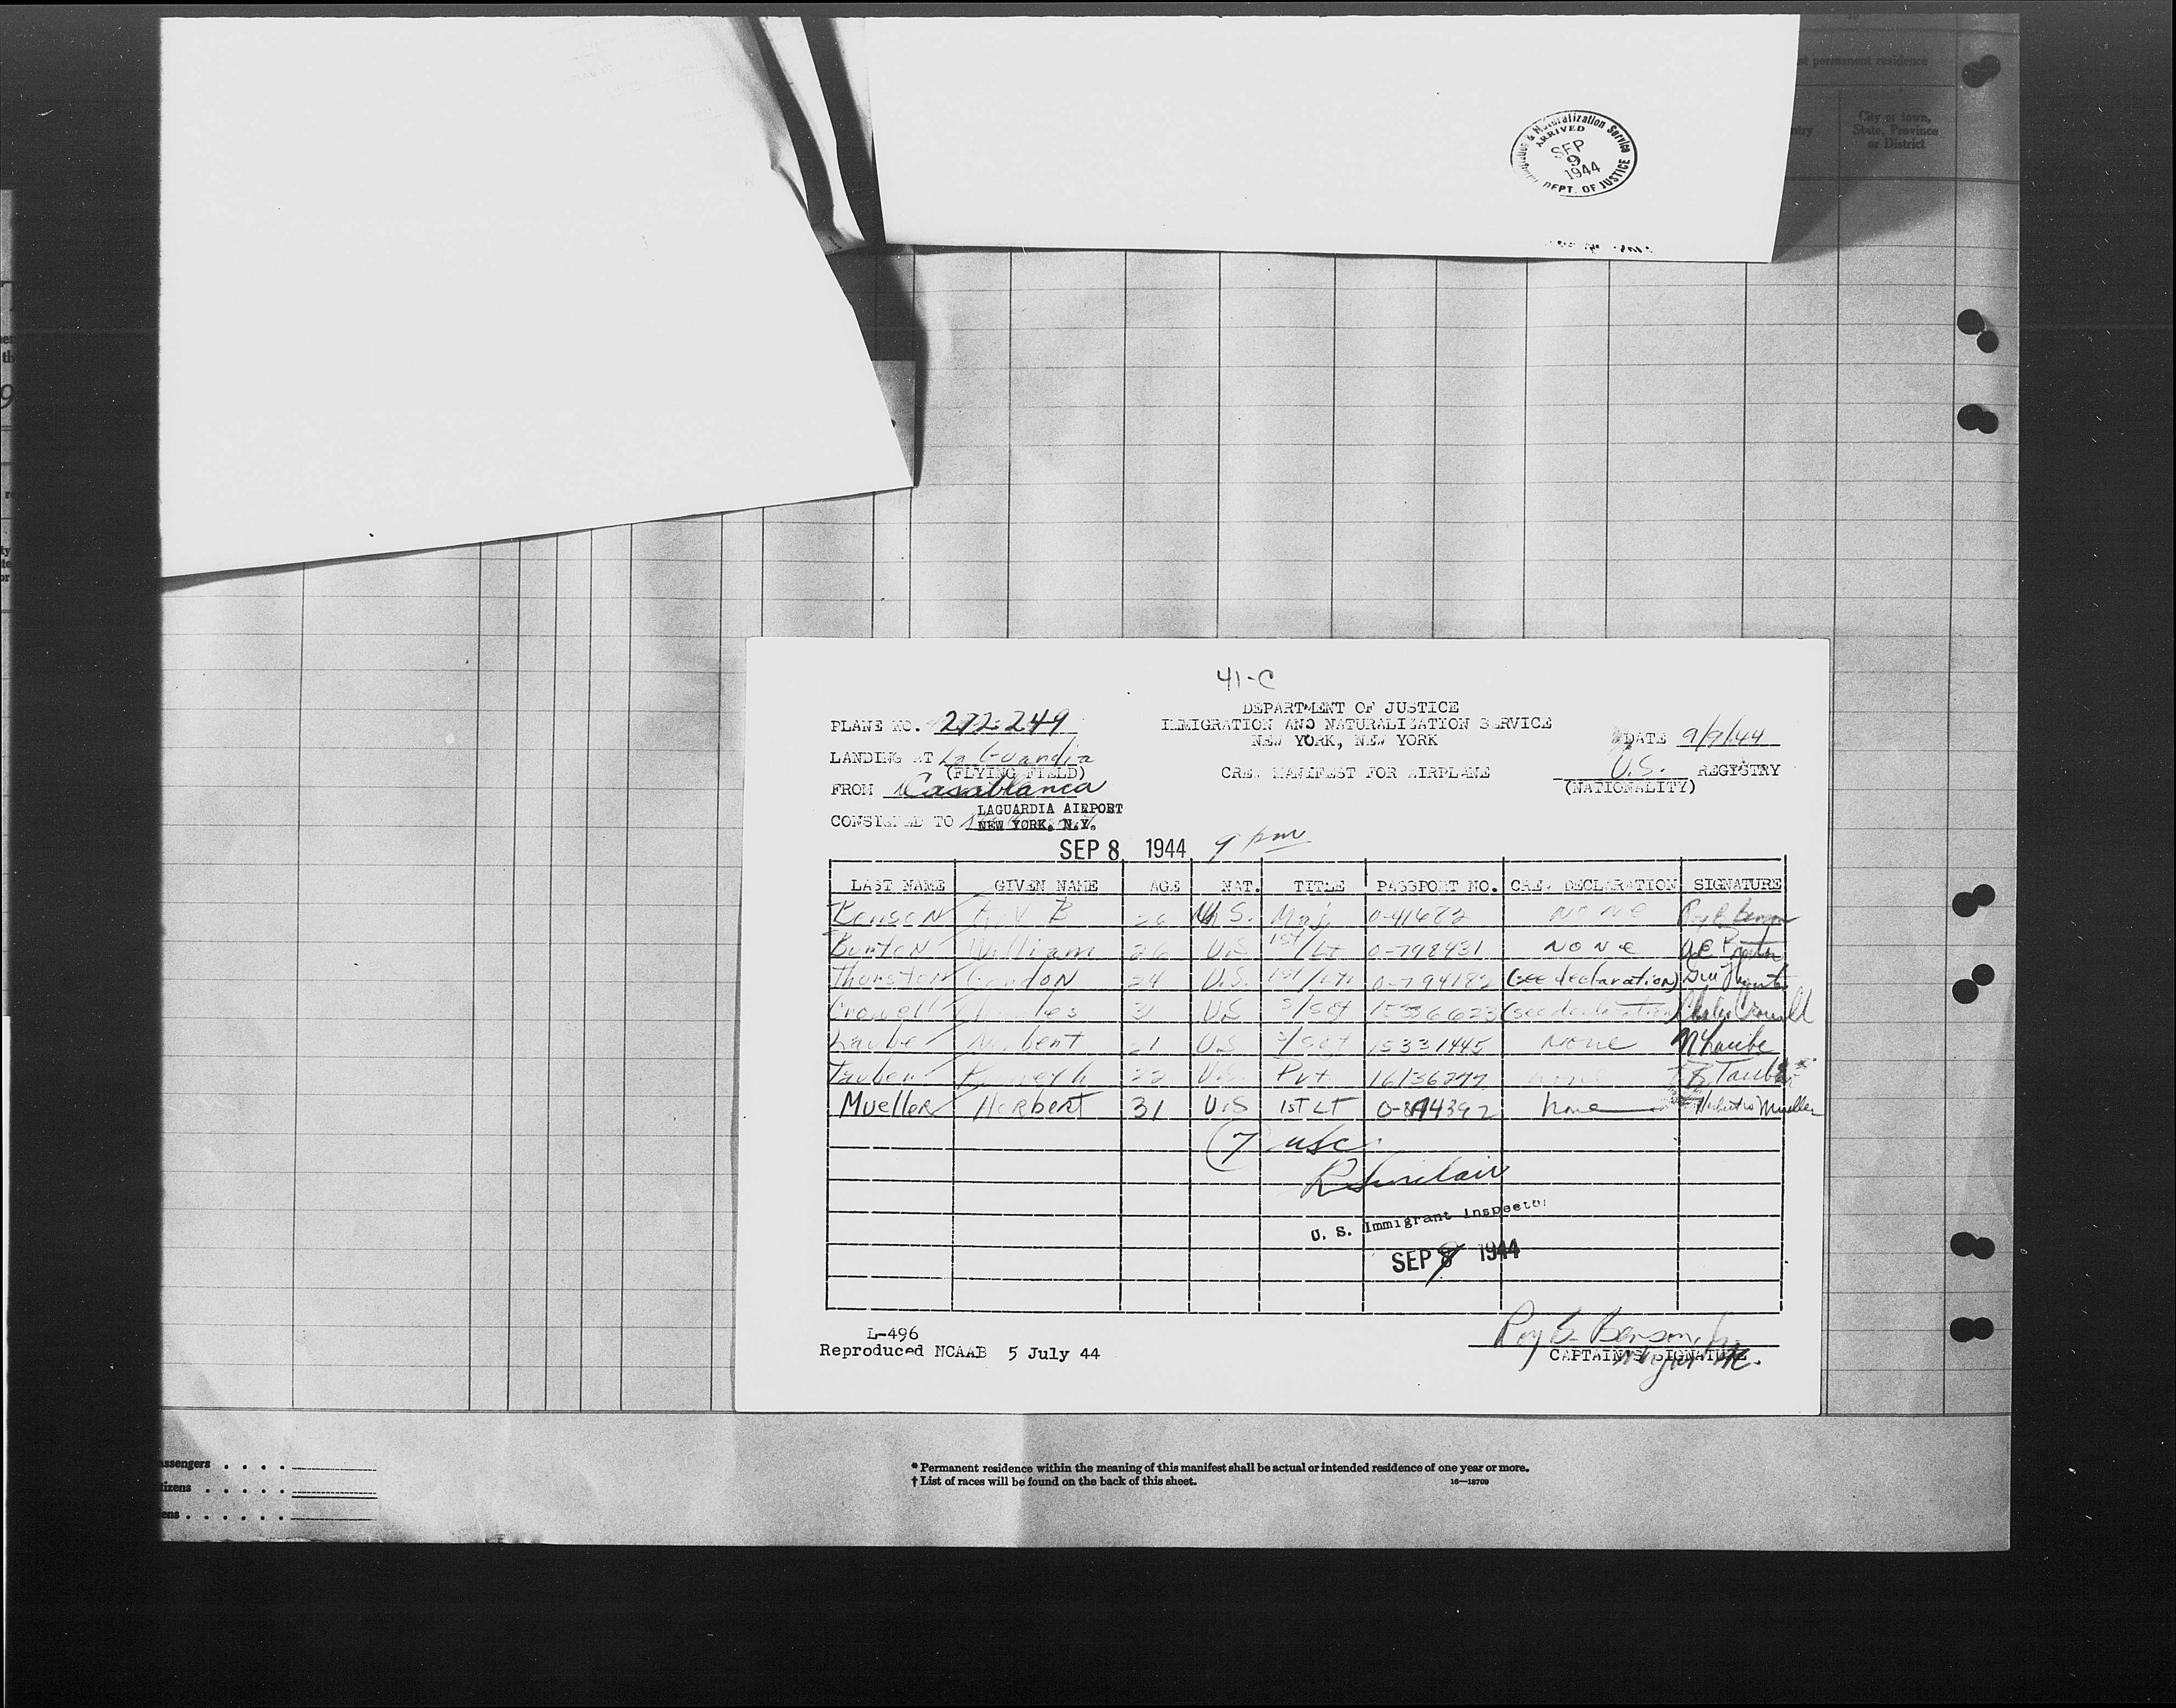 at permanent residence
City or town,
State, Province
or District
Naturalization Service
ARRIVED
SEP
9
1944
DEPT. OF JUSTICE
41-C
DEPARTMENT OF JUSTICE
IMMIGRATION AND NATURALIZATION SERVICE
NEW YORK, NEW YORK
PLANE NO. 272249
DATE 9/9/44
LANDING AT La Guardia
(FLYING FIELD)
CREW MANIFEST FOR AIRPLANE
U.S. REGISTRY
(NATIONALITY)
FROM Casablanca
LAGUARDIA AIRPORT
CONSIGNED TO NEW YORK, N.Y.
SEP 8 1944 9 pm
LAST NAME GIVEN NAME AGE NAT. TITLE PASSPORT NO. CREW DECLARATION SIGNATURE
Benson Roy B 26 U.S. Maj. 0-41682 NONE Roy B Benson
Burton William 26 U.S 1st/Lt 0-798431 NONE
Thurston Gordon 24 U.S. 1st/Lt 0-794182 (see declaration)
Crowell Charles 31 U.S S/Sgt 15336623 (see declaration) Charles Crowell
Laube Norbert 21 U.S S/Sgt 15331445 None N Laube
Tauber Kenneth 22 U.S. Pvt 16136277 none K Tauber
Mueller Herbert 31 U.S 1ST LT 0-894392 None Herbert Mueller
(7 usc
R Sinclair
U. S. Immigrant Inspector
SEP 8 1944
L-496
Reproduced NCAAB 5 July 44
Roy B. Benson, Jr.
CAPTAIN'S SIGNATURE
assengers . . . .
* Permanent residence within the meaning of this manifest shall be actual or intended residence of one year or more.
† List of races will be found on the back of this sheet. 16—18709